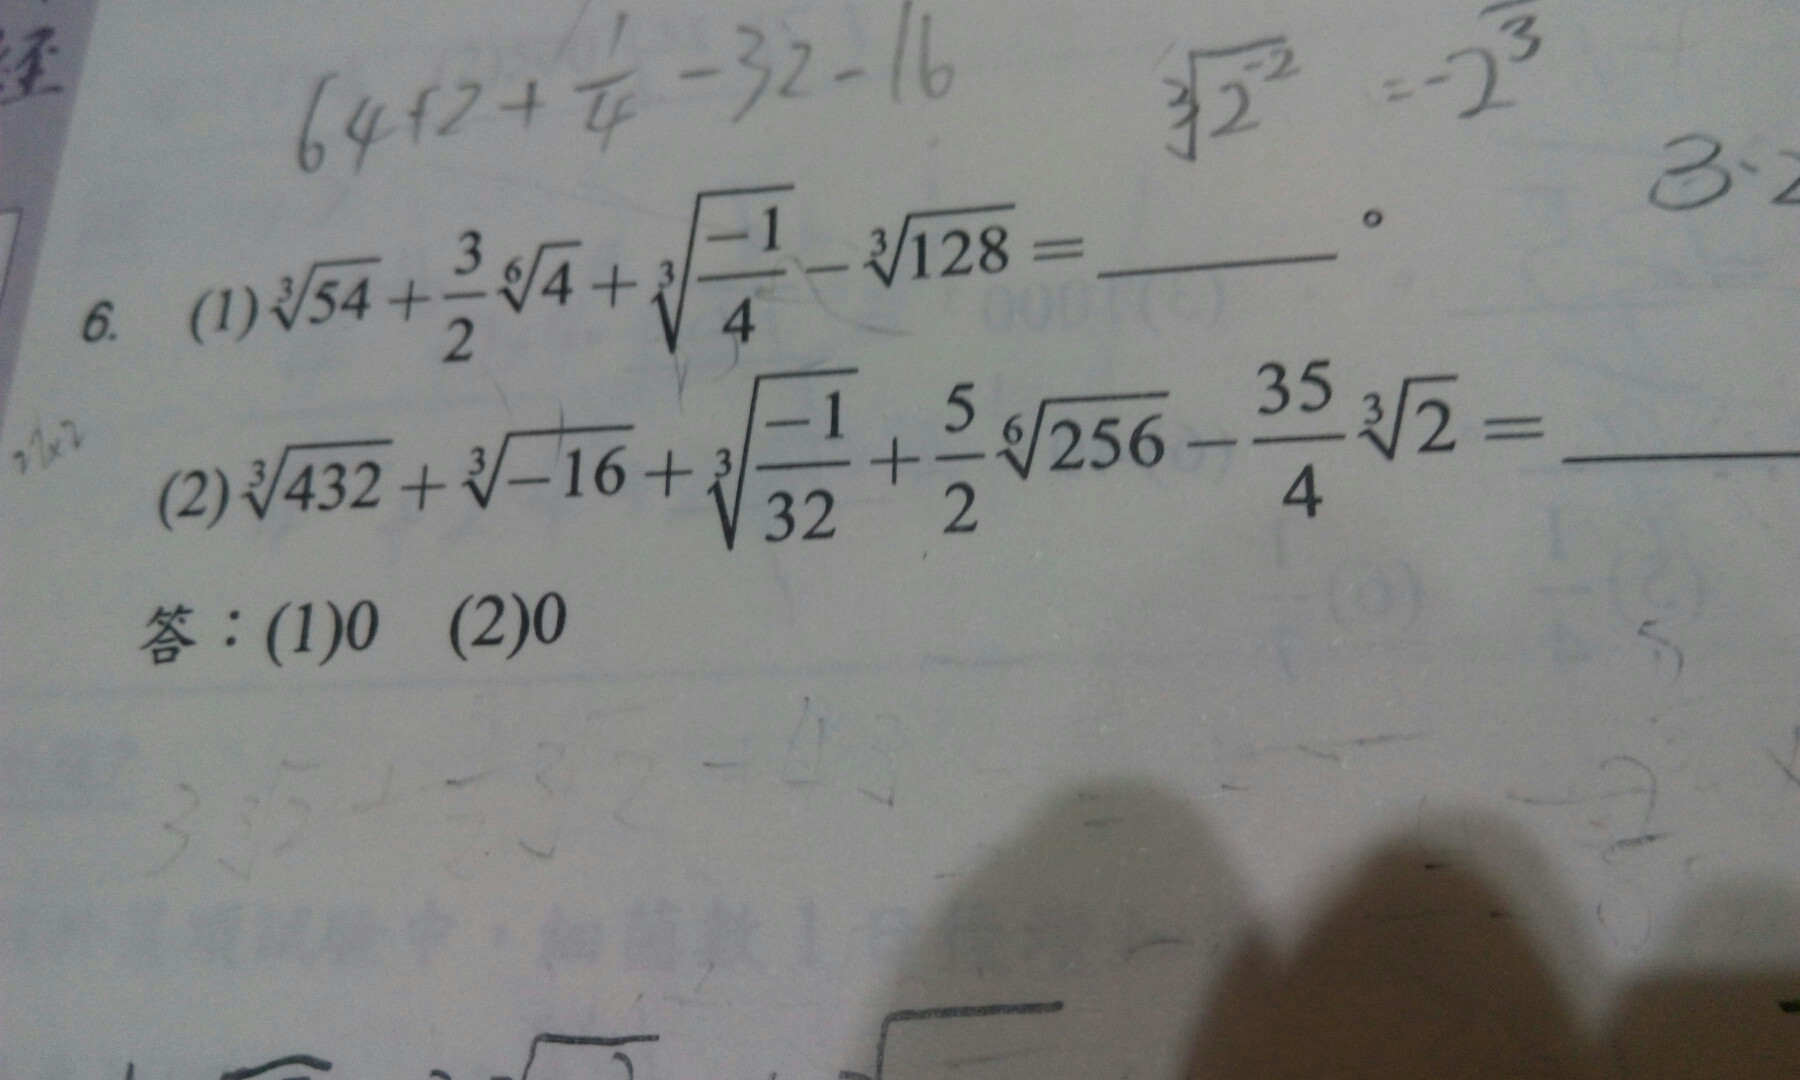 經
64+2+\frac{1}{4}-32-16
\sqrt[3]{2^{-2}} = -2^3
3·2
6. (1) \sqrt[3]{54} + \frac{3}{2}\sqrt[6]{4} + \sqrt[3]{\frac{-1}{4}} - \sqrt[3]{128} = ______。
(2) \sqrt[3]{432} + \sqrt[3]{-16} + \sqrt[3]{\frac{-1}{32}} + \frac{5}{2}\sqrt[6]{256} - \frac{35}{4}\sqrt[3]{2} = ______
答：(1)0 (2)0